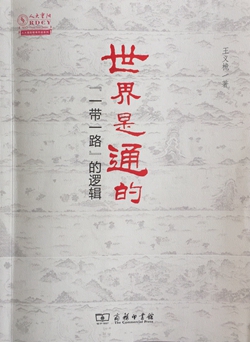 人大重阳
RDCY
世界是通的
“一带一路”的逻辑
王文 著
商务印书馆
The Commercial Press